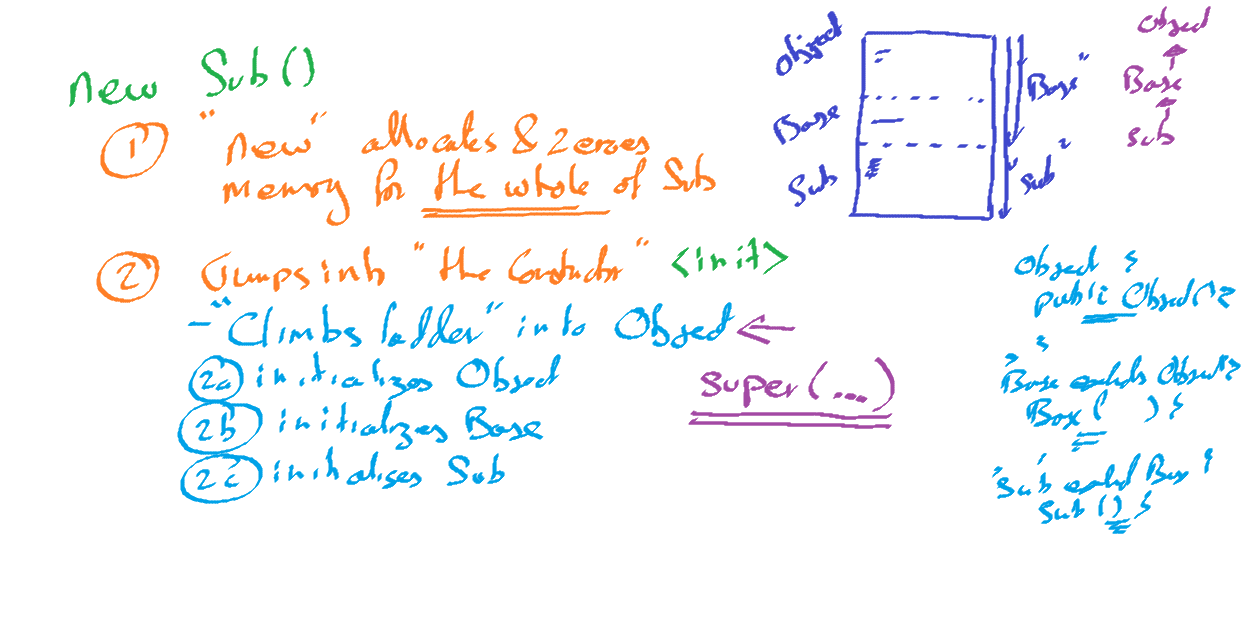 new Sub()
① "new" allocates & zeroes
memory for the whole of Sub
② Jumps into "the constructor" <init>
- "Climbs ladder" into Object ←
2a initializes Object
2b initializes Base
2c initialises Sub
super(...)
Object
Base
Sub
"Base"
"Sub"
Object
Base
Sub
Object {
public Object() {
}
} Base extends Object {
Base ( ) {
}
} Sub extends Base {
Sub () {